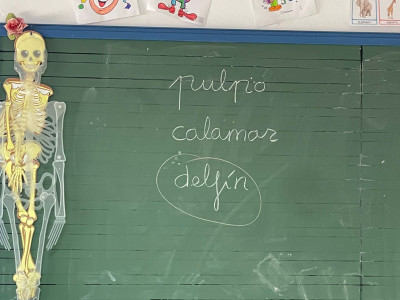 pulpo
calamar
delfín